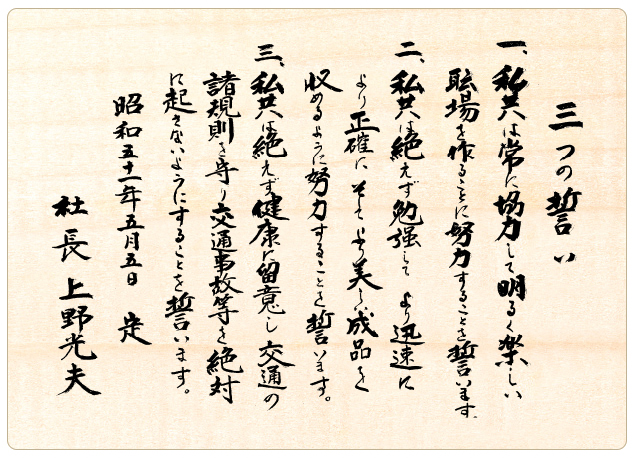 三つの誓い
一、私共は常に協力して明るく楽しい
職場を作ることに努力することを誓います
二、私共は絶えず勉強して より迅速に
より正確に そして より美しい成品を
収めるように努力することを誓います。
三、私共は絶えず健康に留意し 交通の
諸規則を守り 交通事故等を絶対
に起きないようにすることを誓います。
昭和五十一年五月五日 定
社長 上野光夫